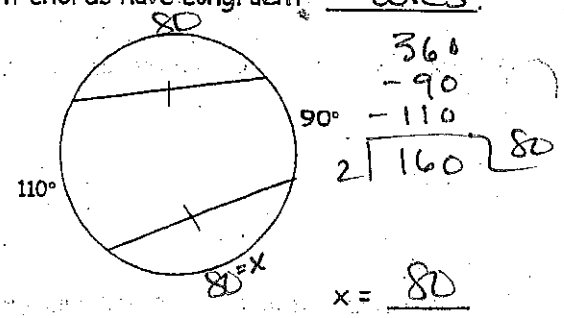 chords have congruent arcs.
80
360
-90
90° -110
2 160 80
110°
80=x
x = 80